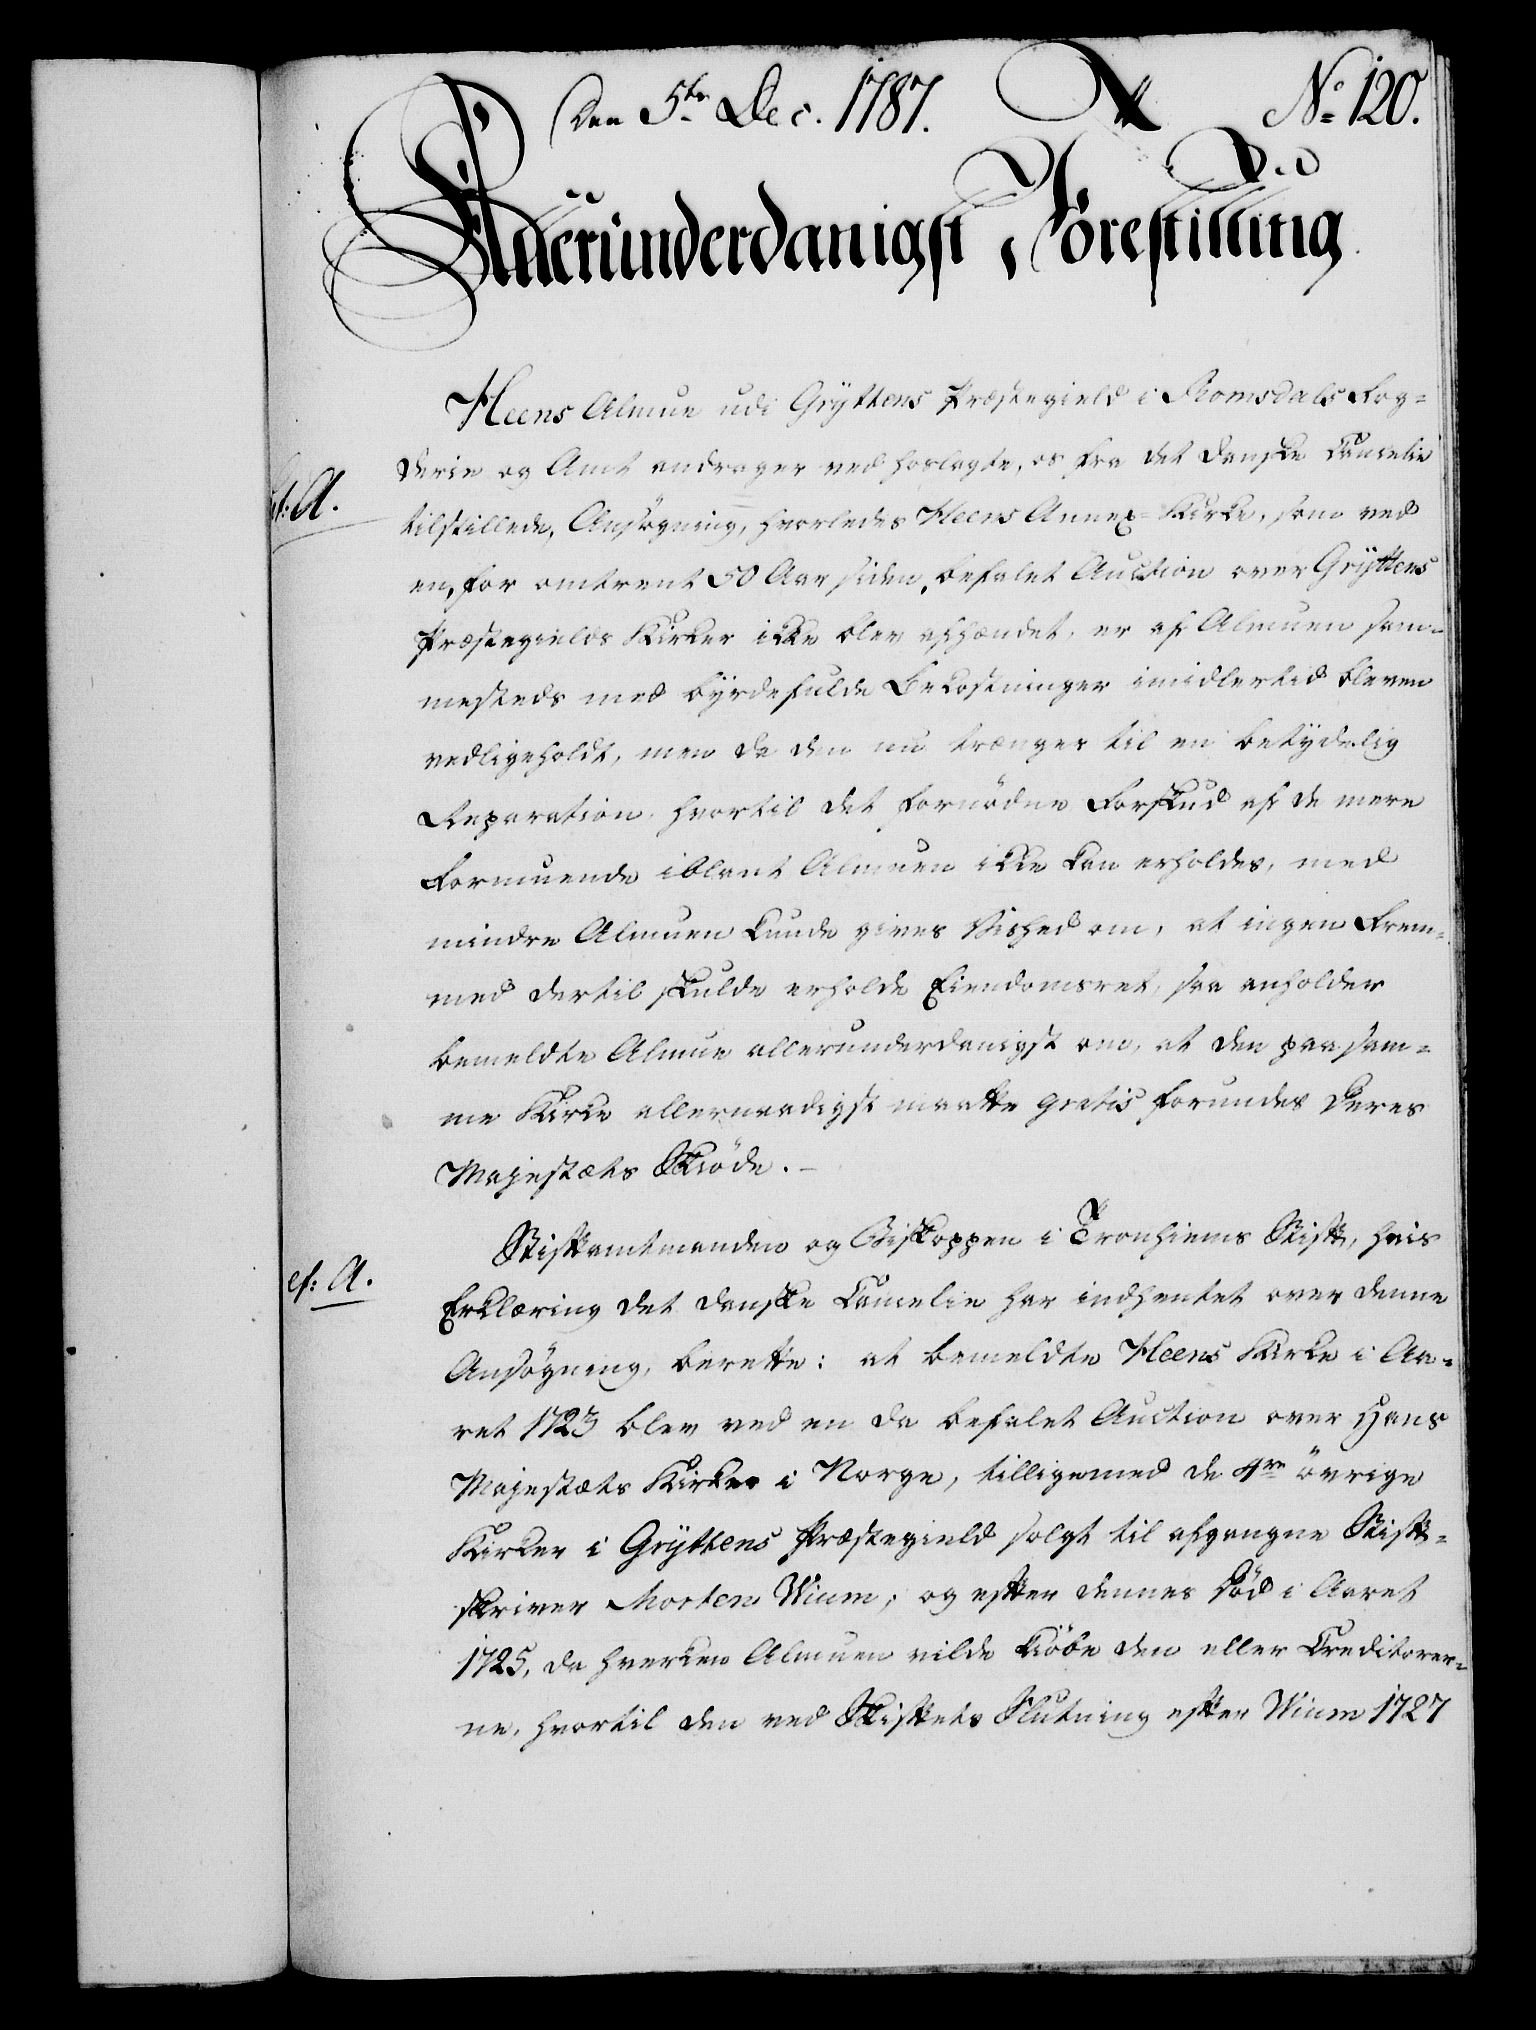 Den 5te Dec. 1787.
No 120.
Alleründerdanigst Forestilling.
Heens Almue udi Gryttens Præstegield i Romsdals Fog=
derie og Amt andrager ved hoslagte, os fra det danske Cancelie
cf: A.
tilstillede, Ansøgning, hvorledes Heens Annex-Kirke, som ved
en, for omtrent 50 Aar siden, befalet Auction over Gryttens
Præstegields Kirker ikke blev afhændet, er af Almuen sam=
mesteds med byrdefulde Bekostninger imidlertid bleven
vedligeholdt, men da den nu trænger til en betydelig
Reparation, hvortil det fornødne Forskud af de mere
formuende iblant Almuen ikke kan erholdes, med
mindre Almuen kunde gives Vished om, at ingen Frem=
med dertil skulde erholde Eiendomsret, saa anholder
bemeldte Almue allerunderdanigst om, at den paa sam=
me Kirke allernaadigst maatte gratis forundes Deres
Majestæts Skiöde. -
Stiftamtmanden og Biskoppen i Tronhiems Stift, hvis
cf: A.
Erklæring det danske Cancelie har indhentet over denne
Ansøgning, berette: at bemeldte Heens Kirke i Aa=
ret 1723 blev ved en da befalet Auction over Hans
Majestæts Kirker i Norge, tilligemed de 4re øvrige
Kirker i Gryttens Præstegield solgt til afgangne Stift=
skriver Morten Wium, og efter dennes Død i Aaret
1725, da hverken Almuen vilde kiöbe den eller Creditorer=
ne, hvortil den ved Skiftets Slutning efter Wium 1727